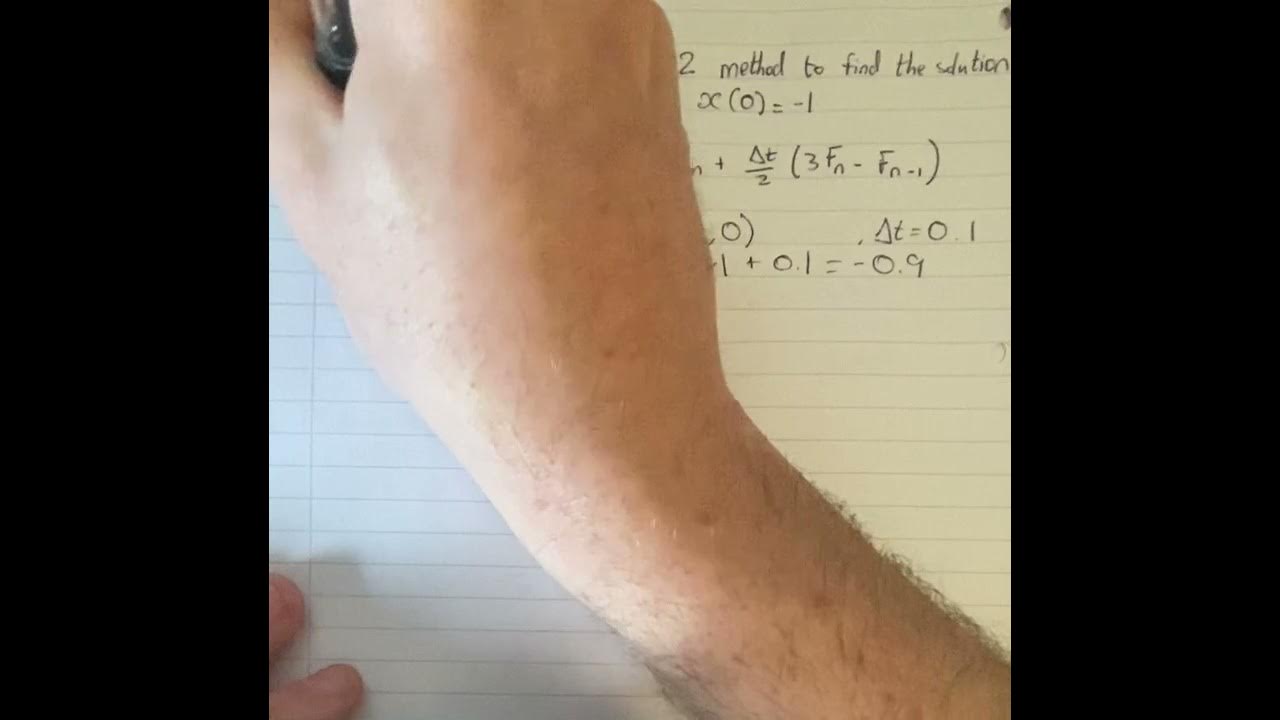 2 method to find the solution
x(0) = -1
n + Δt/2 (3Fn - Fn-1)
,0) , Δt = 0.1
-1 + 0.1 = -0.9
)